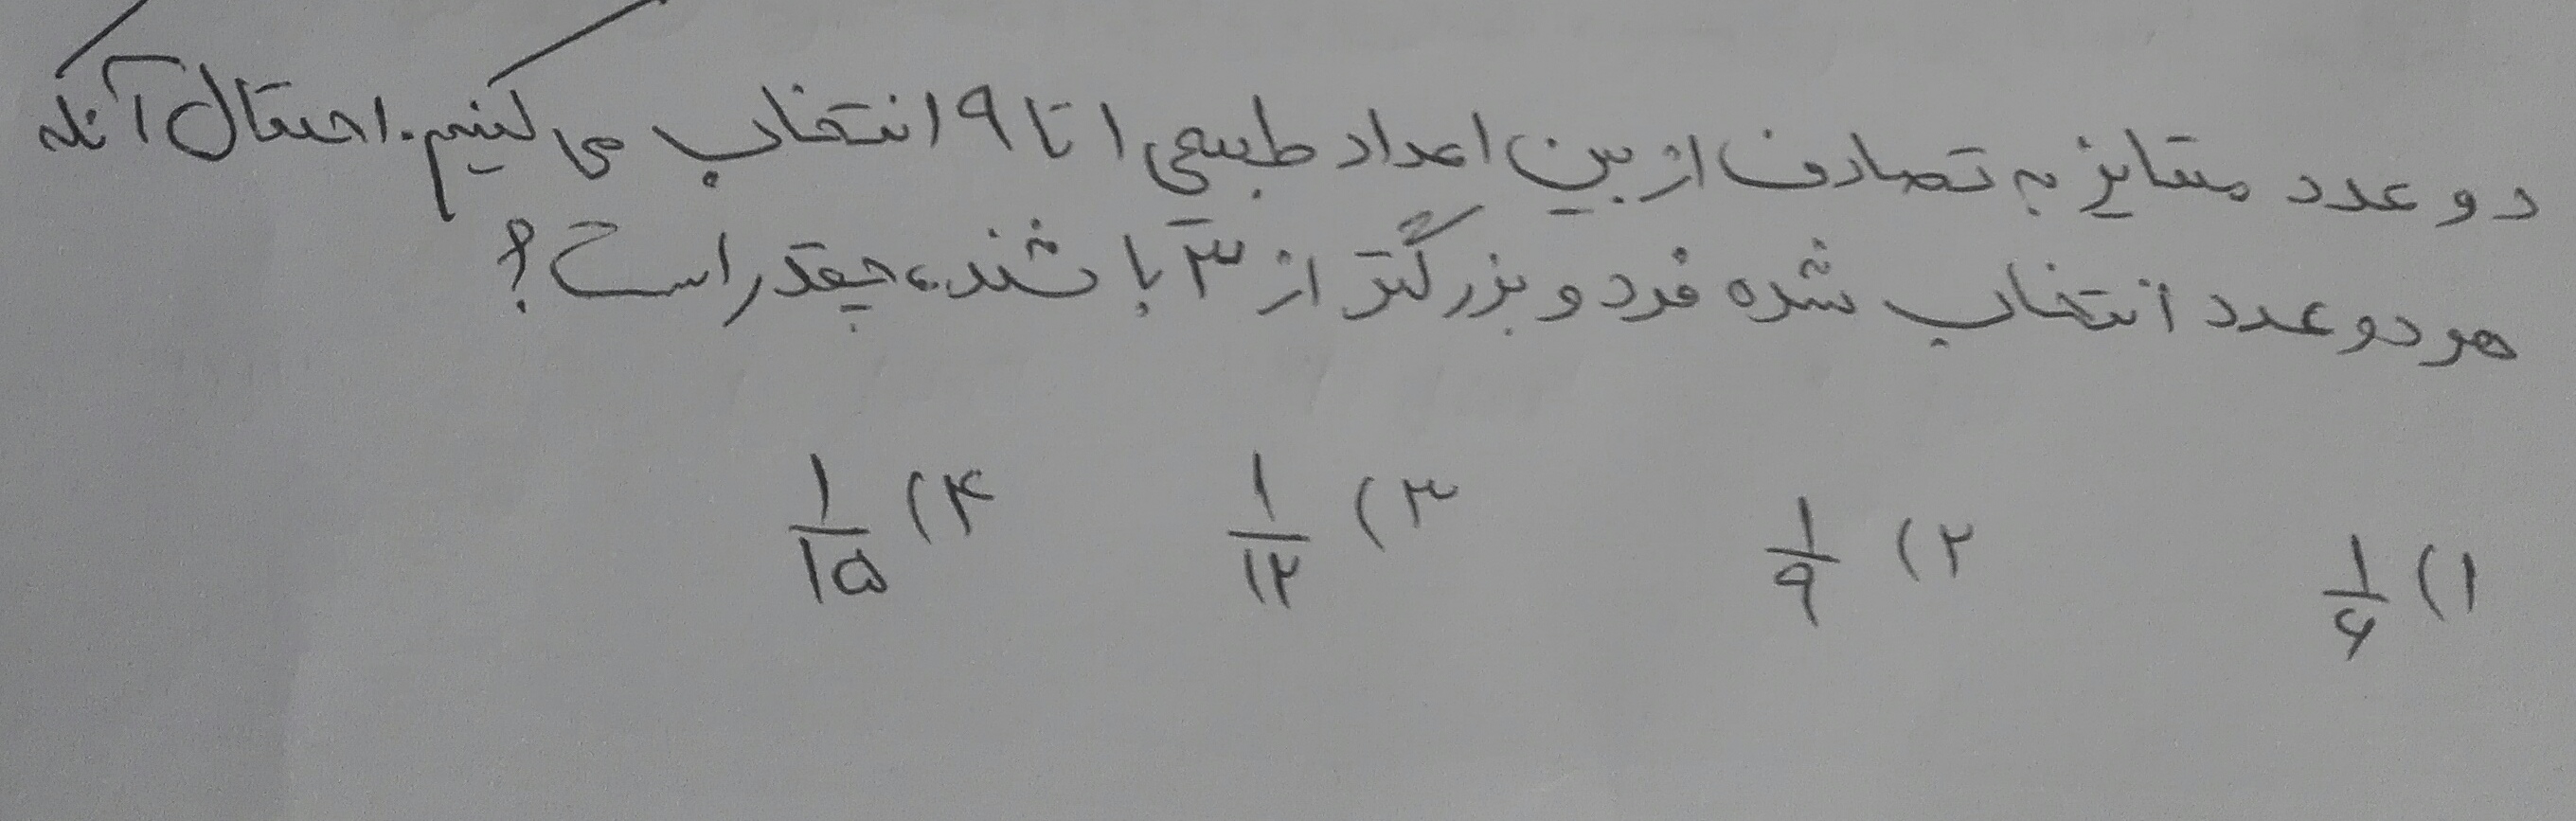 دو عدد متمایز به تصادف از بین اعداد طبیعی ۱ تا ۹ انتخاب می کنیم. احتمال آنکه
هر دو عدد انتخاب شده فرد و بزرگتر از ۳ باشند، چقدر است؟
۱) ۱/۶ ۲) ۱/۹ ۳) ۱/۱۲ ۴) ۱/۱۵